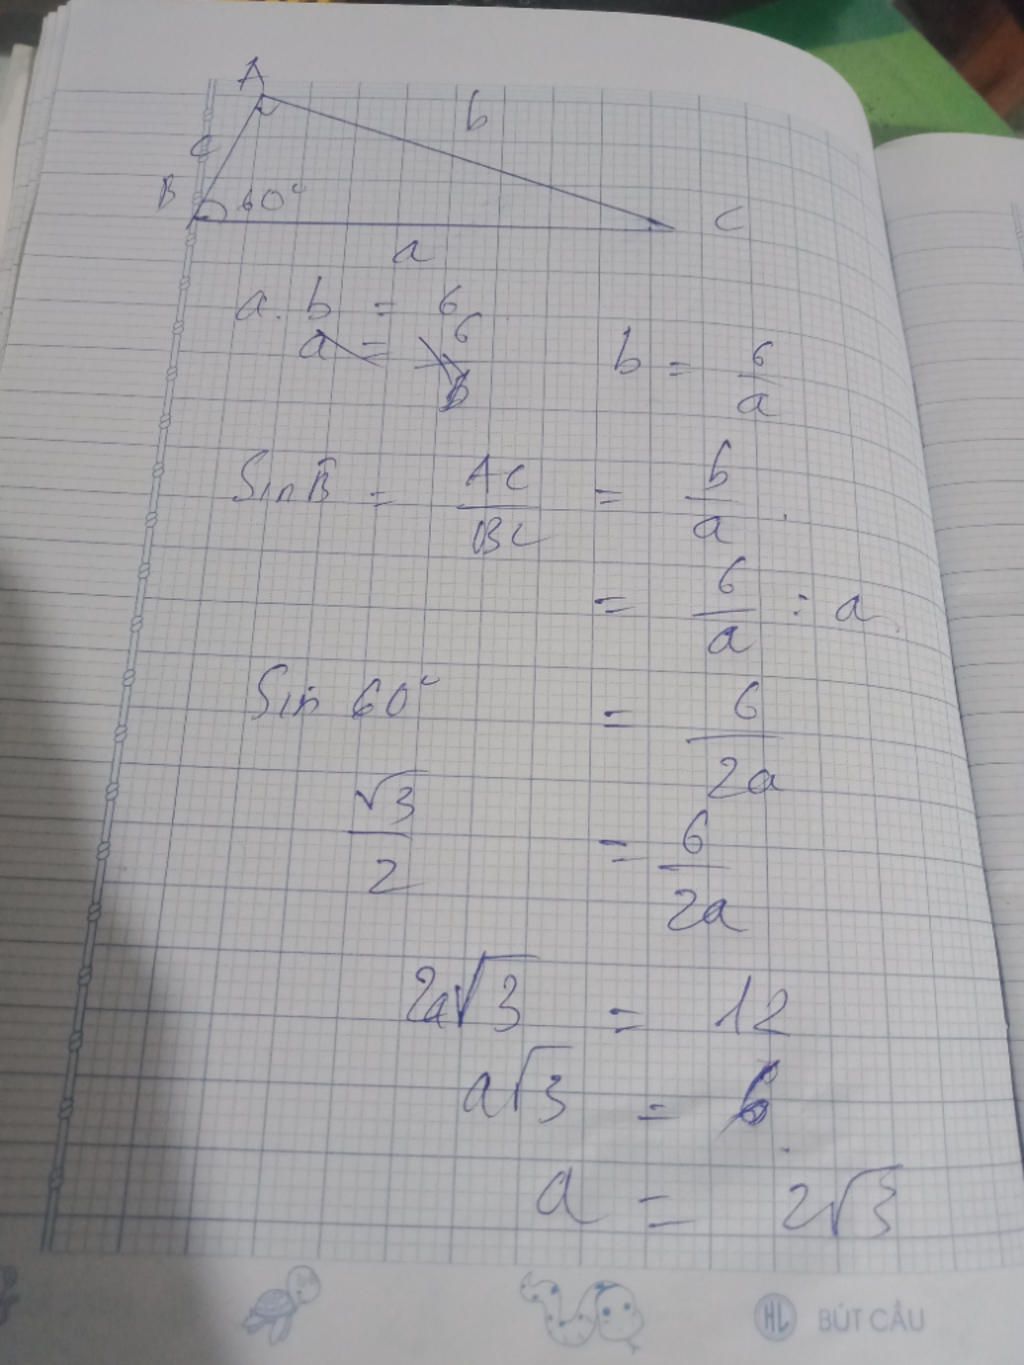 A
b
c
B 60° C
a
a. b = 6
a = 6/b b = 6/a
Sin B̂ = AC/BC = b/a
= 6/a : a
Sin 60° = 6/2a
√3/2 = 6/2a
2a√3 = 12
a√3 = 6
a = 2√3
HL BÚT CÂU